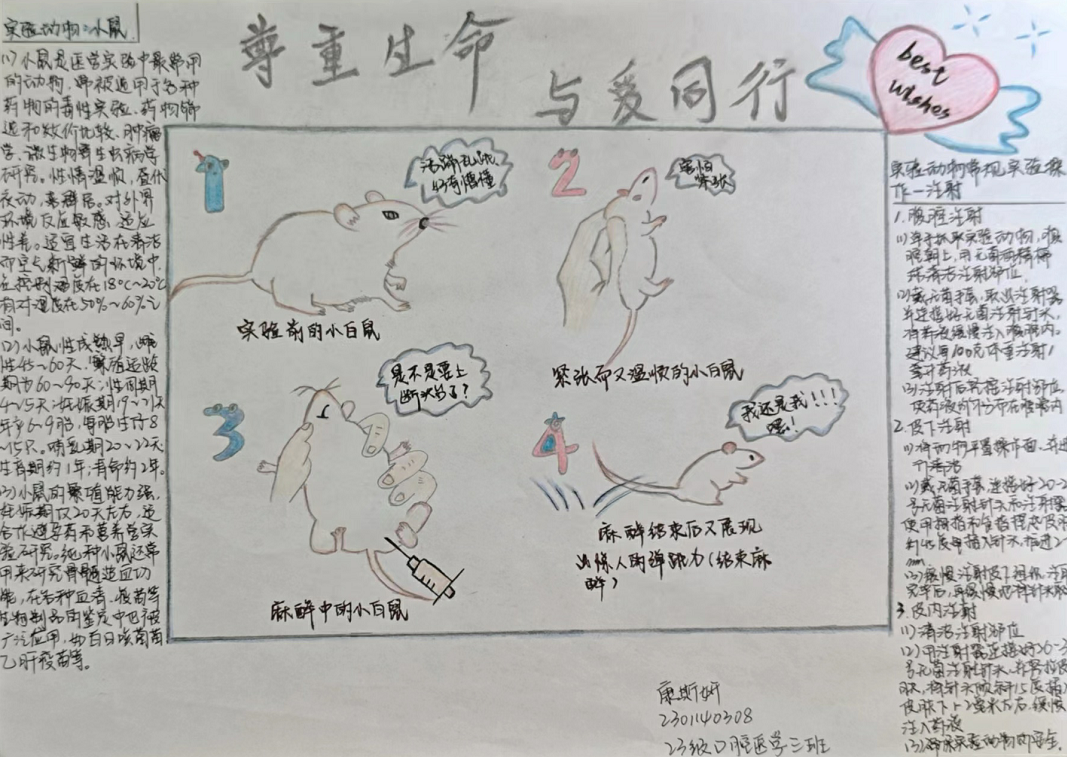 尊重生命
与爱同行
best
wishes
实验动物:小鼠
(1)小鼠是医学实验中最常用
的动物,常被适用于各种
药物的毒性实验、药物筛
选和效价比较、肿瘤
学、微生物学生虫病学
研究。性情温顺,昼伏
夜动,喜群居。对外界
环境反应敏感,适应
性差。适宜生活在清洁
而空气新鲜的环境中,
应控制温度在18℃~20℃
相对湿度在50%~60%之
间。
(2)小鼠性成熟早,雌
性45~60天,繁殖适龄
期为60~90天;性周期
4~5天;妊娠期19~21天
年产6~9胎,每胎生仔8
~15只。哺乳期20~22天
生育期约1年,寿命约2年。
(3)小鼠的繁殖能力强,
妊娠期仅20天左右,适
合作避孕药和营养学实
验研究。纯种小鼠还常
用来研究骨髓造血功
能,在各种血清、疫苗等
生物制品的鉴定中也被
广泛应用,如百日咳菌苗
乙肝疫苗等。
1
活蹦乱跳
好奇懵懂
实验前的小白鼠
2
害怕
紧张
紧张而又温顺的小白鼠
3
是不是要上
断头台了?
麻醉中的小白鼠
4
我还是我!!!
嘿!
麻醉结束后又展现
出惊人的弹跳力(结束麻
醉)
实验动物常规实验操
作—注射
1.腹腔注射
(1)单手抓取实验动物,腹
部朝上,用
清洁注射部位.
(2)戴无菌手套,取出注射器
并连接好无菌注射针头,
将药液缓慢注入腹腔内,
建议每100克体重注射1
毫升药液
(3)注射后轻揉注射部位,
使药液均匀分布在腹腔内
2.皮下注射
(1)将动物平置操作面,
清洁
(2)戴无菌手套,连接好20-2
号无菌注射针头和注射器
使用拇指和食指捏起皮肤
斜45度角插入针头,推进2-
mm
(3)缓慢注射皮下组织,注射
完毕后,再缓慢地将针头取
3.皮内注射
(1)清洁注射部位
(2)用注射器连接好26-3
号无菌注射针头,
肤,将针头倾斜15度插
皮肤下1-2毫米左右,缓慢
注入药液
(3)确保实验动物的安全.
康斯妍
2301140308
23级口腔医学三班